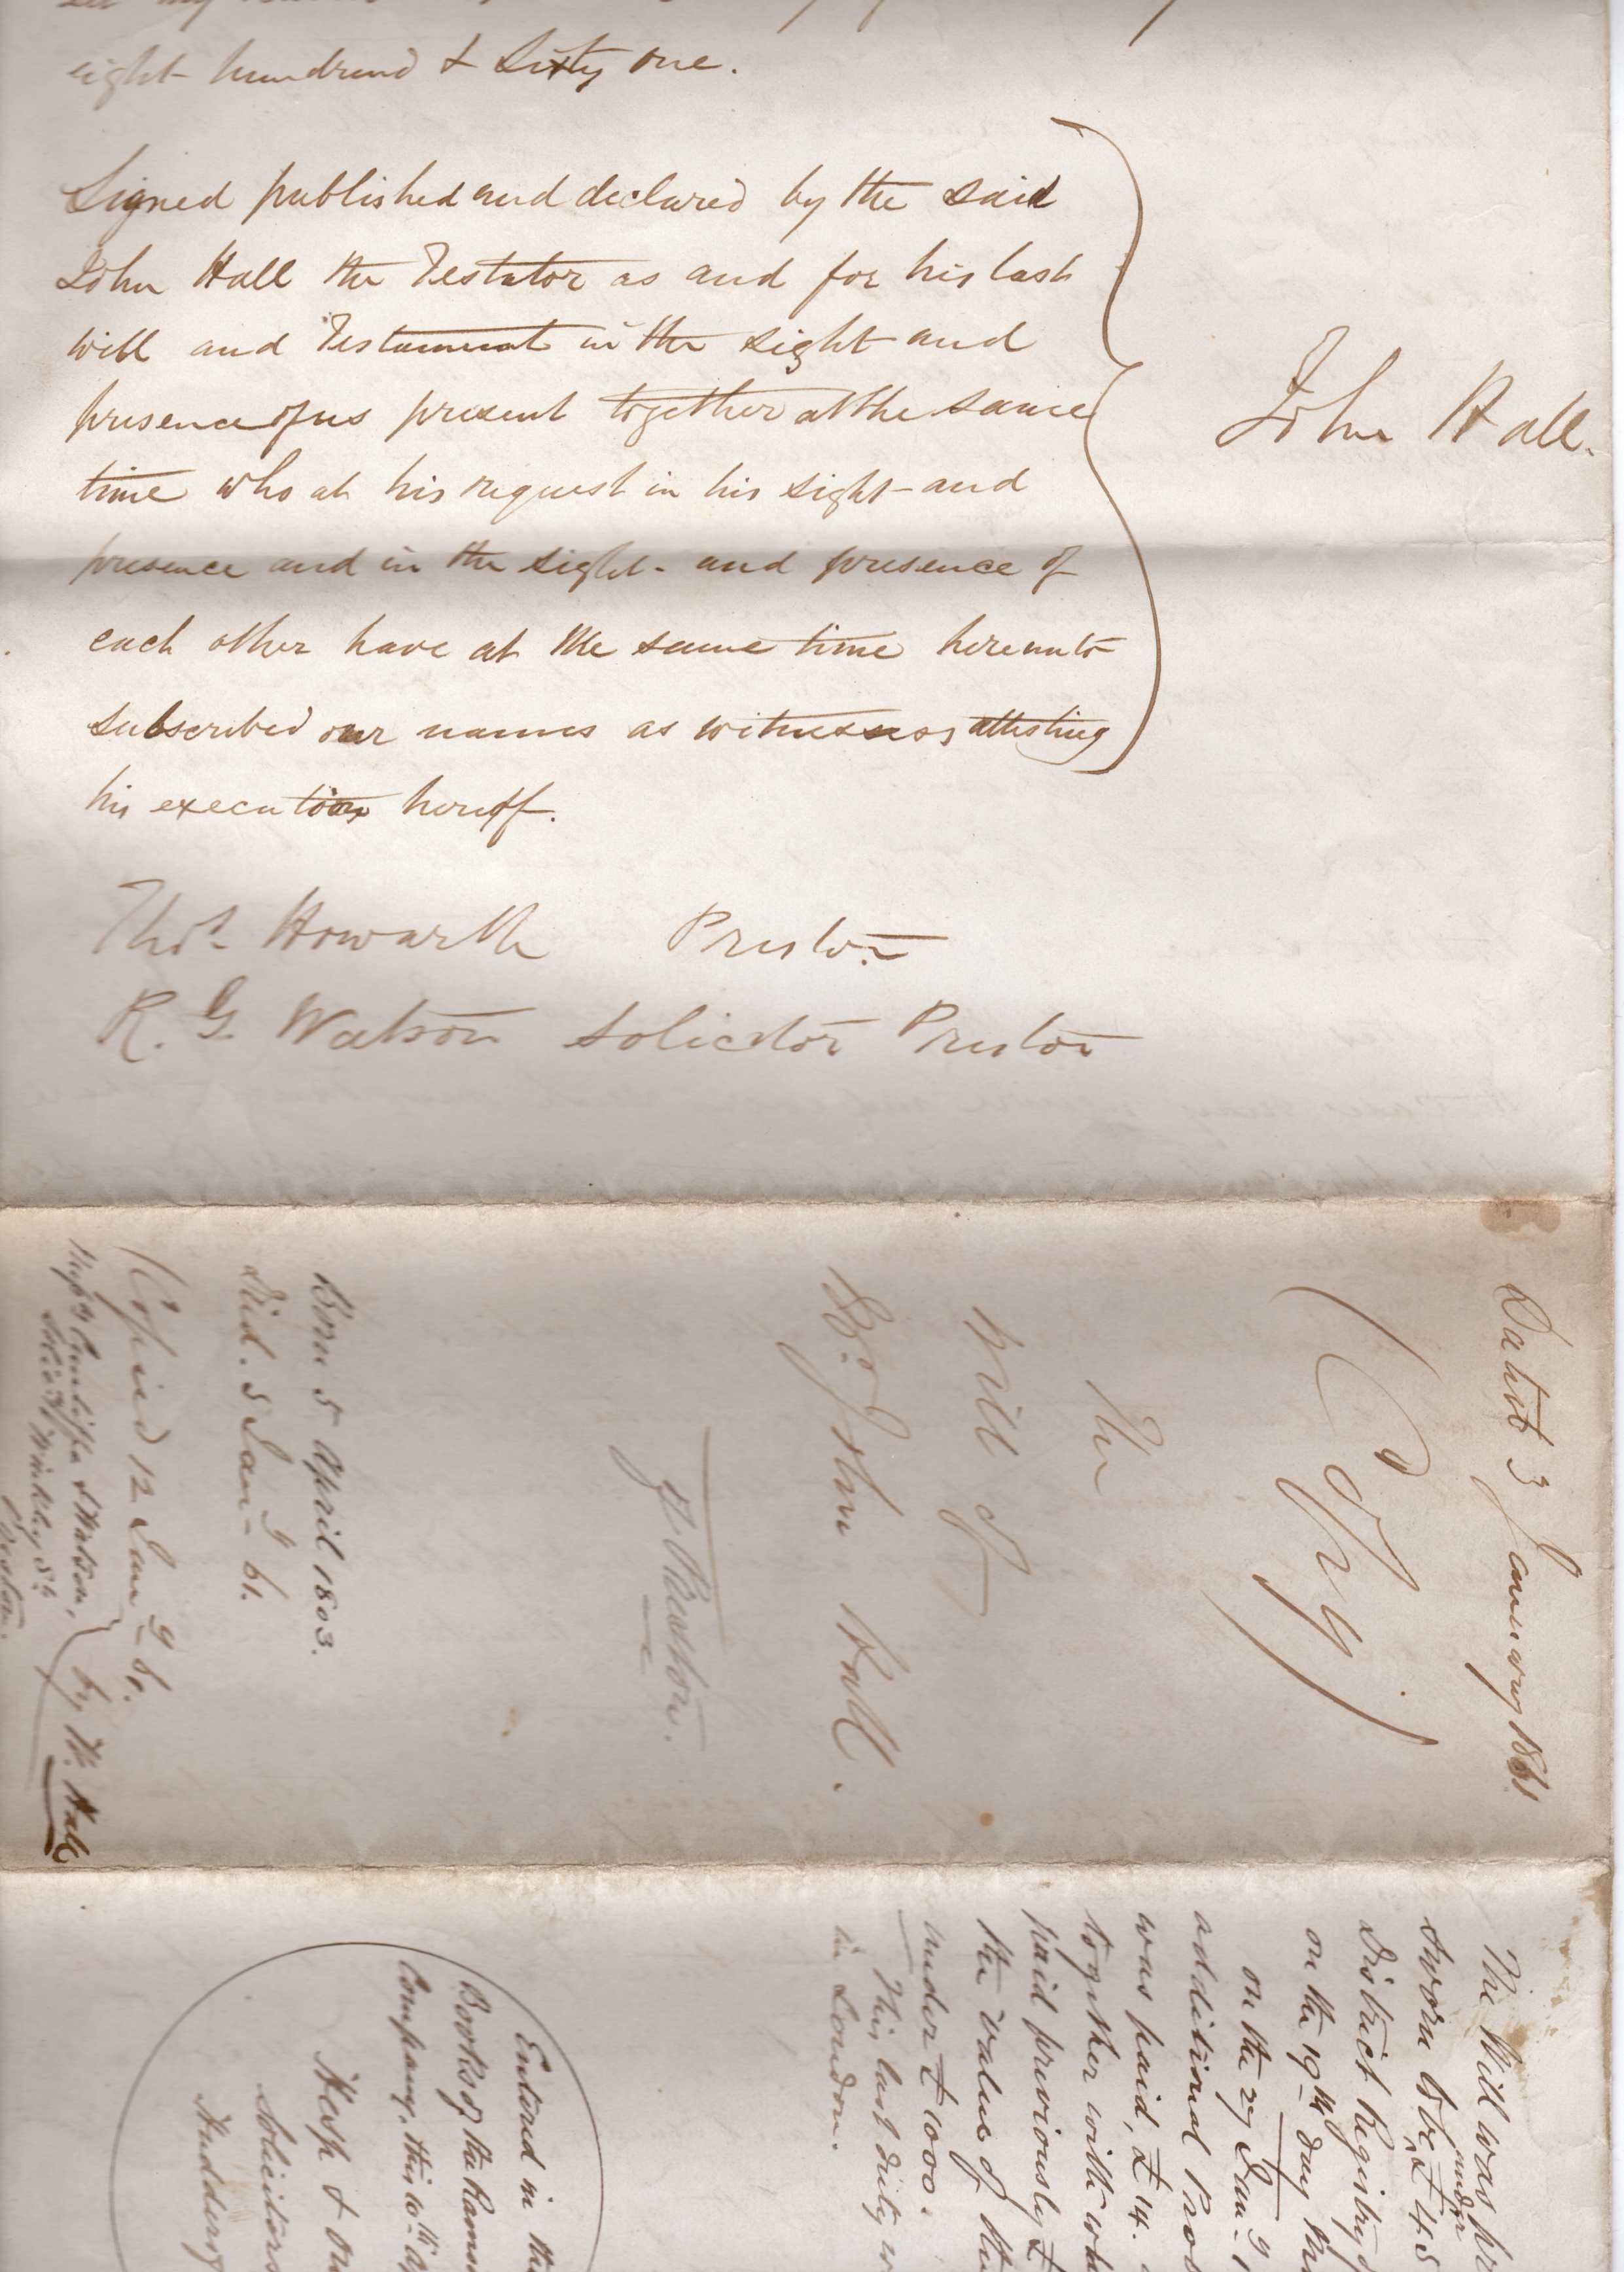 eight hundred & Sixty one.
Signed published and declared by the said
John Hall the Testator as and for his last
will and Testament in the sight and
presence of us present together at the same
time who at his request in his sight and
presence and in the sight - and presence of
each other have at the same time hereunto
subscribed our names as witnesses attesting
his execution hereof.
John Hall.
Thos. Howarth Preston
R. G. Watson Solicitor Preston
Dated 3 January 1861
(Copy)
The
Will of
Mr. John Hall.
of Preston.
Born 5 April 1803.
Died. 5 Jany 61.
Copied 12 Jany 61.
Messrs Cunliffe & Watson,
Solrs 3 Winkley St.
Preston.
by W. Hall
The Will was pr
sworn to be under £45
District Registry
on the 19th day
on the 29 Jany
additional
was paid, £14.
together with
paid previously £
the value of the
under £1000.
This last duty
in London.
Entered in the
Books of the Rams
Company, this 10th
Hesp &
Solicitors
Hudders